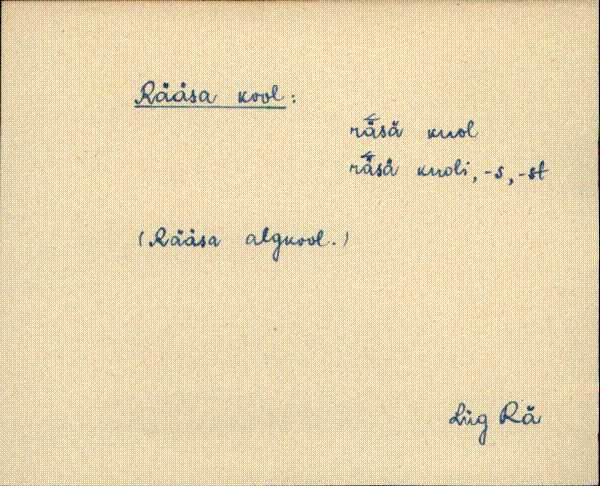 Rääsa kool:
rä̆sä kuol
rä̆sä kuoli, -s, -st
(Rääsa algkool.)
Lüg Rä